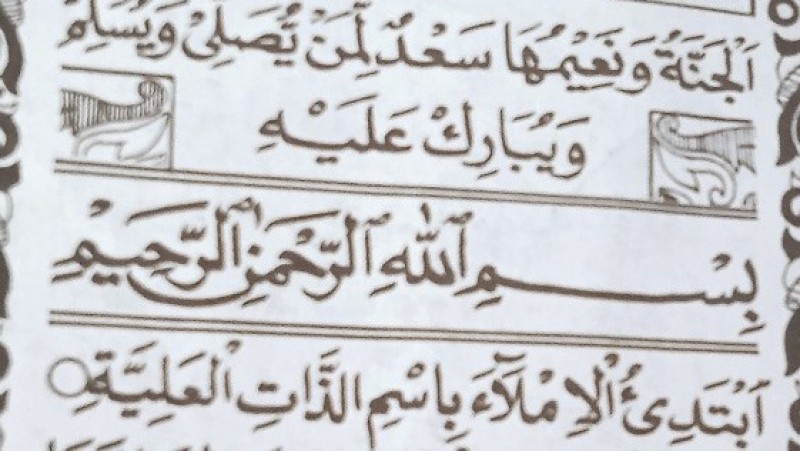 اَلْجَنَّةُ وَنَعِيْمُهَا سَعْدٌ لِّمَنْ يُّصَلِّيْ وَيُسَلِّمُ
وَيُبَارِكْ عَلَيْهِ
بِسْمِ ٱللّٰهِ ٱلرَّحْمٰنِ ٱلرَّحِيْمِ
اَبْتَدِئُ الْاِمْلَآءَ بِاسْمِ الذَّاتِ الْعَلِيَّةِ